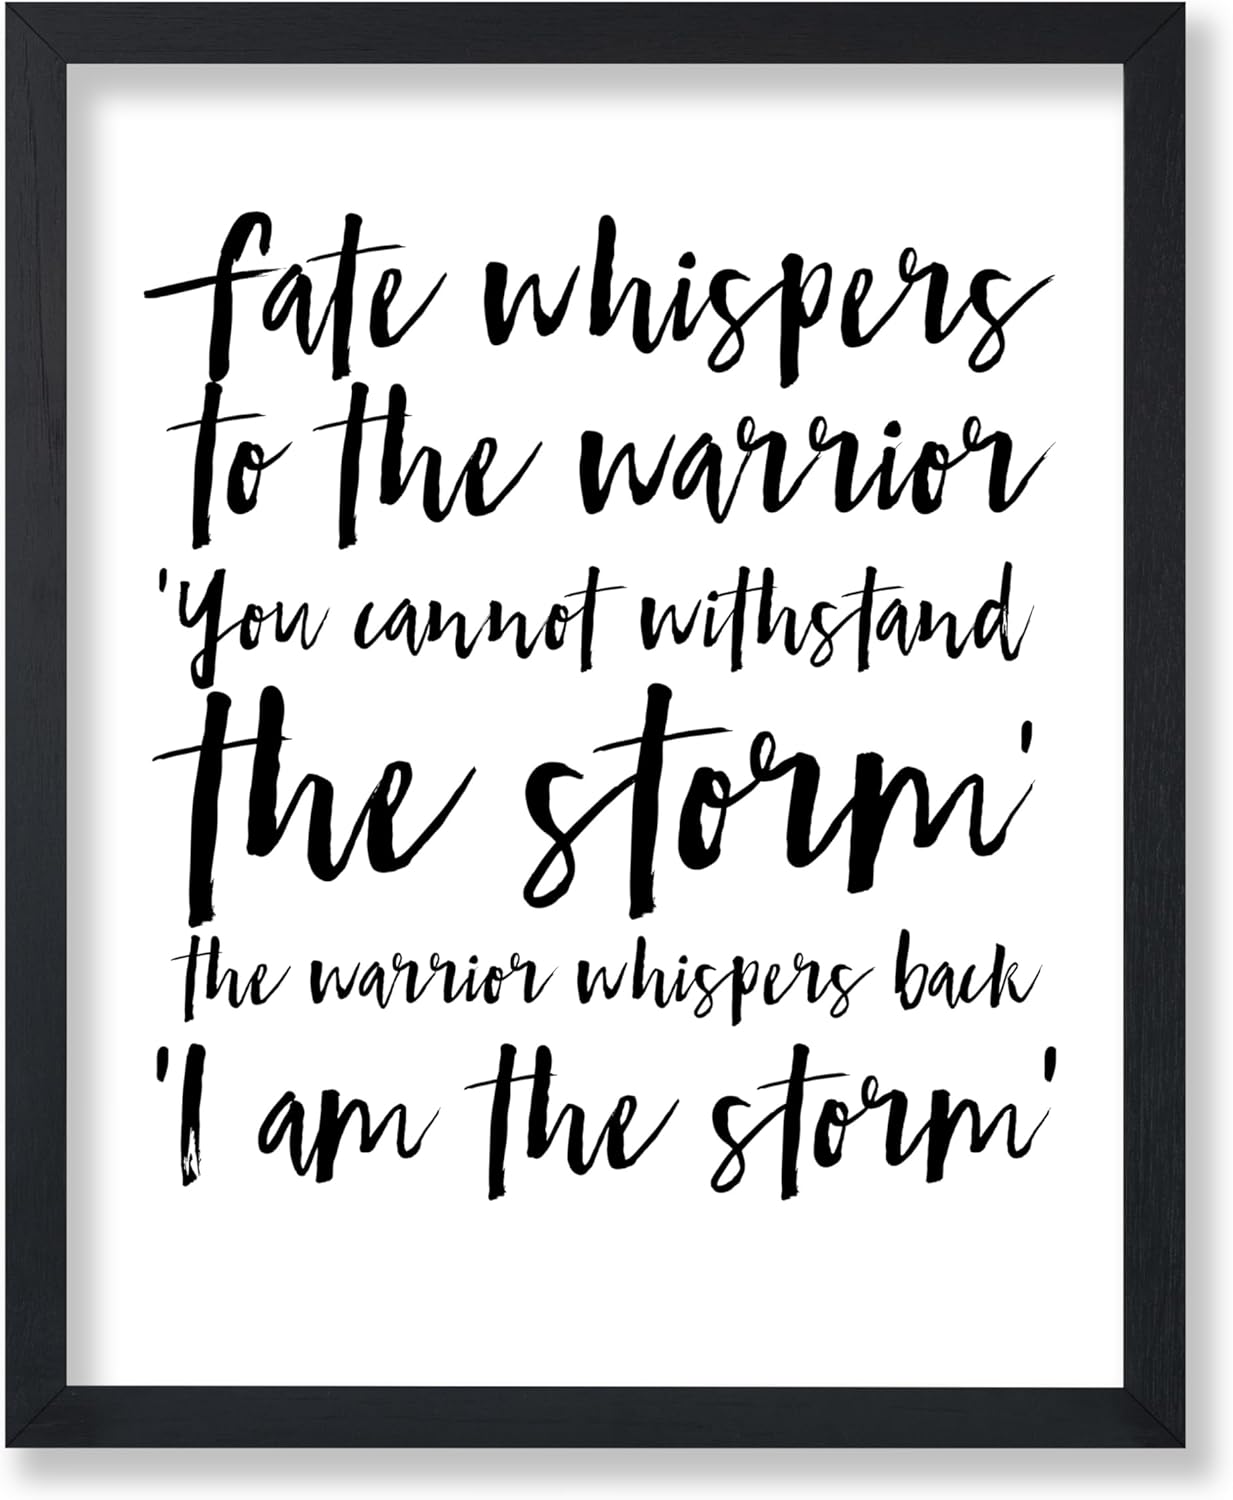 fate whispers
to the warrior
'You cannot withstand
the storm'
the warrior whispers back
'I am the storm'